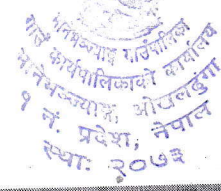 मानेभञ्ज्याङ गाउँपालिका
गाउँ कार्यपालिकाको कार्यालय
मानेभञ्ज्याङ, ओखलढुंगा
१ नं. प्रदेश, नेपाल
स्था: २०७३